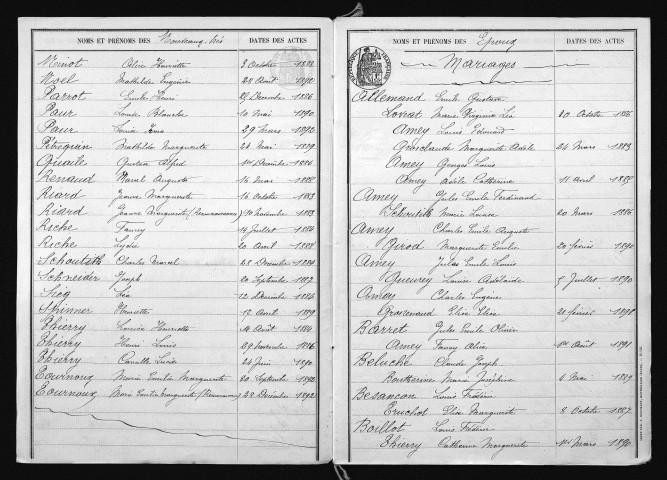 NOMS ET PRÉNOMS DES Nouveaux-Nés DATES DES ACTES
Méniot Alice Henriette 3 Octobre 1888
Noël Mathilde Eugénie 28 Août 1892
Parrot Emile Henri Décembre 1886
Paur Louise Blanche 10 Mai 1890
Paur Louise 29 Mars 1892
Pétrequin Mathilde Marguerite 24 Mai 1889
Quaile Gustave Alfred 1er Décembre 1886
Renaud Raoul Auguste 16 Mai 1888
Riard Jeanne Marguerite 16 Octobre 1883
Riard Jeanne Marguerite (Reconnaissance) 10 Novembre 1883
Riche Fanny 14 Juillet 1884
Riche Lydie 20 Avril 1888
Schoutith Charles Marcel 28 Décembre 1884
Schneider Joseph 20 Septembre 1887
Sieg Léa 12 Décembre 1884
Skinner Henriette 12 Avril 1889
Thierry Louise Henriette 14 Août 1884
Thierry Henri Louis 29 Novembre 1886
Thierry Camille Lucie 24 Juin 1890
Tournoux Marie Emilie Marguerite 20 Septembre 1892
Tournoux Marie Emilie Marguerite (Reconnaissance) 28 Décembre 1892
NOMS ET PRÉNOMS DES Epoux DATES DES ACTES
Mariages
Allemand Emile Gustave
Lovrat Marie Virginie Léa 30 Octobre 1886
Amey Louis Edouard
Grosclaude Marguerite Adèle 24 Mars 1883
Amey Georges Louis
Amey Adèle Catherine 11 Avril 1885
Amey Jules Emile Ferdinand
Schoutith Marie Louise 20 Mars 1886
Amey Charles Emile Auguste
Girod Marguerite Emilie 20 février 1890
Amey Jules Emile Louis
Queuvey Louise Adélaïde 5 Juillet 1890
Amey Charles Eugène
Grosrenaud Elise Elisa 21 février 1891
Barret Jules Emile Olivier
Amey Fanny Alice 1er Août 1891
Beluche Claude Joseph
Bouthenne Marie Joséphine 6 Mai 1889
Besançon Louis Frédéric
Truchot Elise Marguerite 8 Octobre 1887
Boillot Louis Frédéric
Thierry Catherine Marguerite 1er Mars 1890